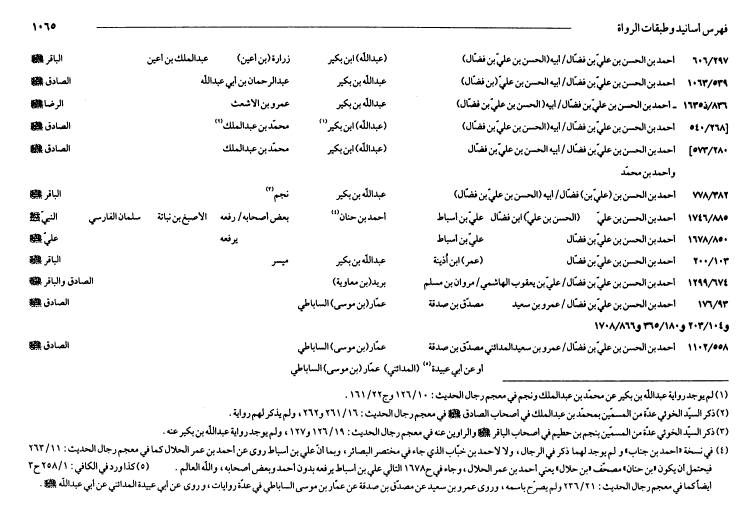 فهرس أسانيد وطبقات الرواة ١٠٦٥
٦٠٦/٢٩٧ أحمد بن الحسن بن عليّ بن فضّال/ أبيه (الحسن بن عليّ بن فضّال) (عبدالله) ابن بكير زرارة (بن أعين) عبدالملك بن أعين الباقر ﷺ
١٠٦٣/٥٣٩ أحمد بن الحسن بن عليّ بن فضّال/ أبيه الحسن بن عليّ (بن فضّال) عبدالله بن بكير عبدالرحمان بن أبي عبدالله الصادق ﷺ
١٦٣٥/٨٣٦ ـ أحمد بن الحسن بن عليّ بن فضّال/ أبيه (الحسن بن عليّ بن فضّال) عبدالله بن بكير عمرو بن الأشعث الرضا ﷺ
[٥٤٠/٢٦٨ أحمد بن الحسن بن عليّ بن فضّال/ أبيه (الحسن بن عليّ بن فضّال) (عبدالله) ابن بكير (١) محمّد بن عبدالملك (٢) الصادق ﷺ
٥٧٣/٢٨٠] أحمد بن الحسن بن عليّ بن فضّال/ أبيه الحسن بن عليّ بن فضّال (عبدالله) ابن بكير محمّد بن عبدالملك الصادق ﷺ
وأحمد بن محمّد
٧٧٨/٣٨٢ أحمد بن الحسن بن (عليّ بن) فضّال/ أبيه (الحسن بن عليّ بن فضّال) عبدالله بن بكير نجم (٣) الباقر ﷺ
١٧٤٦/٨٨٥ أحمد بن الحسن بن عليّ (الحسن بن علي) ابن فضّال عليّ بن أسباط أحمد بن حنان (٤) بعض أصحابه/ رفعه الأصبغ بن نباتة سلمان الفارسي النبيّ ﷺ
١٦٧٨/٨٥٠ أحمد بن الحسن بن عليّ بن فضّال عليّ بن أسباط يرفعه عليّ ﷺ
٢٠٠/١٠٣ أحمد بن الحسن بن عليّ بن فضّال (عمر) ابن أُذينة عبدالله بن بكير ميسر الباقر ﷺ
١٢٩٩/٦٧٤ أحمد بن الحسن بن عليّ بن فضّال/ عليّ بن يعقوب الهاشمي/ مروان بن مسلم بريد (بن معاوية) الصادق والباقر ﷺ
١٧٦/٩٣ أحمد بن الحسن بن عليّ بن فضّال/ عمرو بن سعيد مصدّق بن صدقة عمّار (بن موسى) الساباطي الصادق ﷺ
و٢٠٣/١٠٤ و٣٦٥/١٨٠ و١٧٠٨/٨٦٦
١١٠٢/٥٥٨ أحمد بن الحسن بن عليّ بن فضّال/ عمرو بن سعيد المدائني مصدّق بن صدقة عمّار (بن موسى) الساباطي الصادق ﷺ
أو عن أبي عبيدة (٥) (المدائني) عمّار (بن موسى) الساباطي
(١) لم يوجد رواية عبدالله بن بكير عن محمّد بن عبدالملك ونجم في معجم رجال الحديث: ١٢٦/١٠ وج ١٦١/٢٢.
(٢) ذكر السيّد الخوئي عدّة من المسمّين بمحمّد بن عبدالملك في أصحاب الصادق ﷺ في معجم رجال الحديث: ٢٦١/١٦ و٢٦٢، ولم يذكر لهم رواية.
(٣) ذكر السيّد الخوئي عدّة من المسمّين بنجم بن حطيم في أصحاب الباقر ﷺ والراوين عنه في معجم رجال الحديث: ١٢٦/١٩ و١٢٧، ولم يوجد رواية عبدالله بن بكير عنه.
(٤) في نسخة «أحمد بن جناب» ولم يوجد لهما ذكر في الرجال، ولا لأحمد بن خبّاب الذي جاء في مختصر البصائر، وبما انّ علي بن أسباط روى عن أحمد بن عمر الحلال كما في معجم رجال الحديث: ٢٦٣/١١
فيحتمل أن يكون «بن حنان» مصحّف «بن حلال» يعني أحمد بن عمر الحلال، وجاء في ح١٦٧٨ التالي علي بن أسباط يرفعه بدون أحمد وبعض أصحابه، والله العالم. (٥) كذا ورد في الكافي: ٢٥٨/١ ح٣
ايضاً كما في معجم رجال الحديث: ٢٣٦/٢١ ولم يصرّح باسمه، وروى عمرو بن سعيد عن مصدّق بن صدقة عن عمّار بن موسى الساباطي في عدّة روايات، وروى عن أبي عبيدة المدائني عن أبي عبدالله ﷺ.